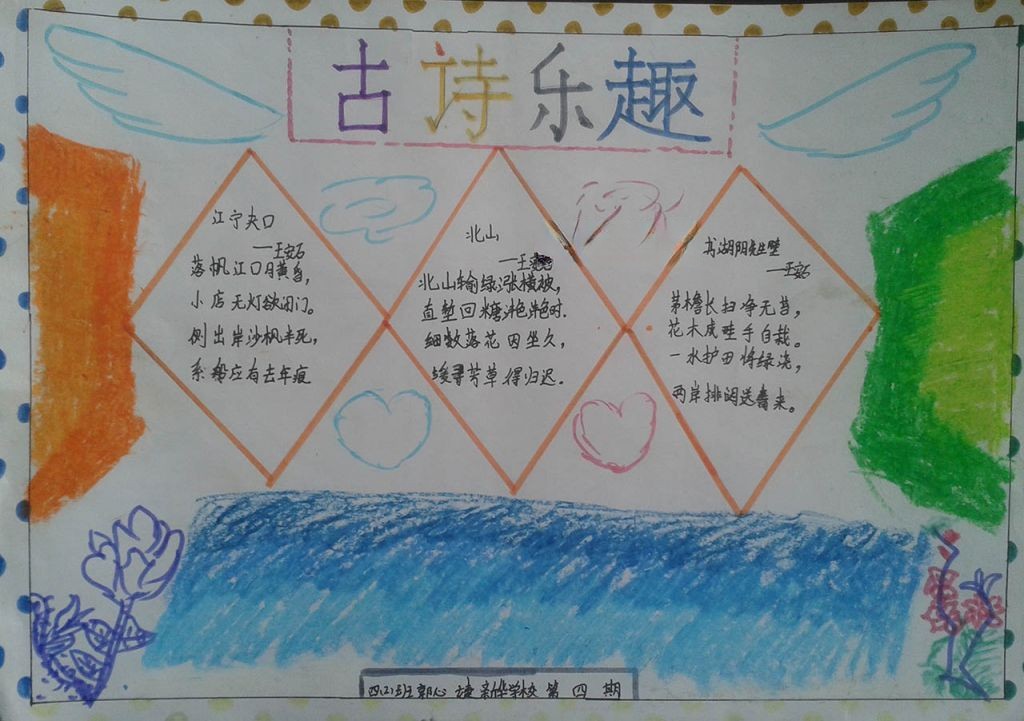 古诗乐趣
江宁夹口
—王安石
落帆江口月黄昏,
小店无灯欲闭门。
侧出岸沙枫半死,
系船应有去年痕
北山
—王安石
北山输绿涨横被,
直堑回塘滟滟时.
细数落花因坐久,
缓寻芳草得归迟.
书湖阴先生壁
—王安石
茅檐长扫净无苔,
花木成畦手自栽。
一水护田将绿浇,
两岸排闼送青来。
四(2)班 郭心 新华学校 第四期